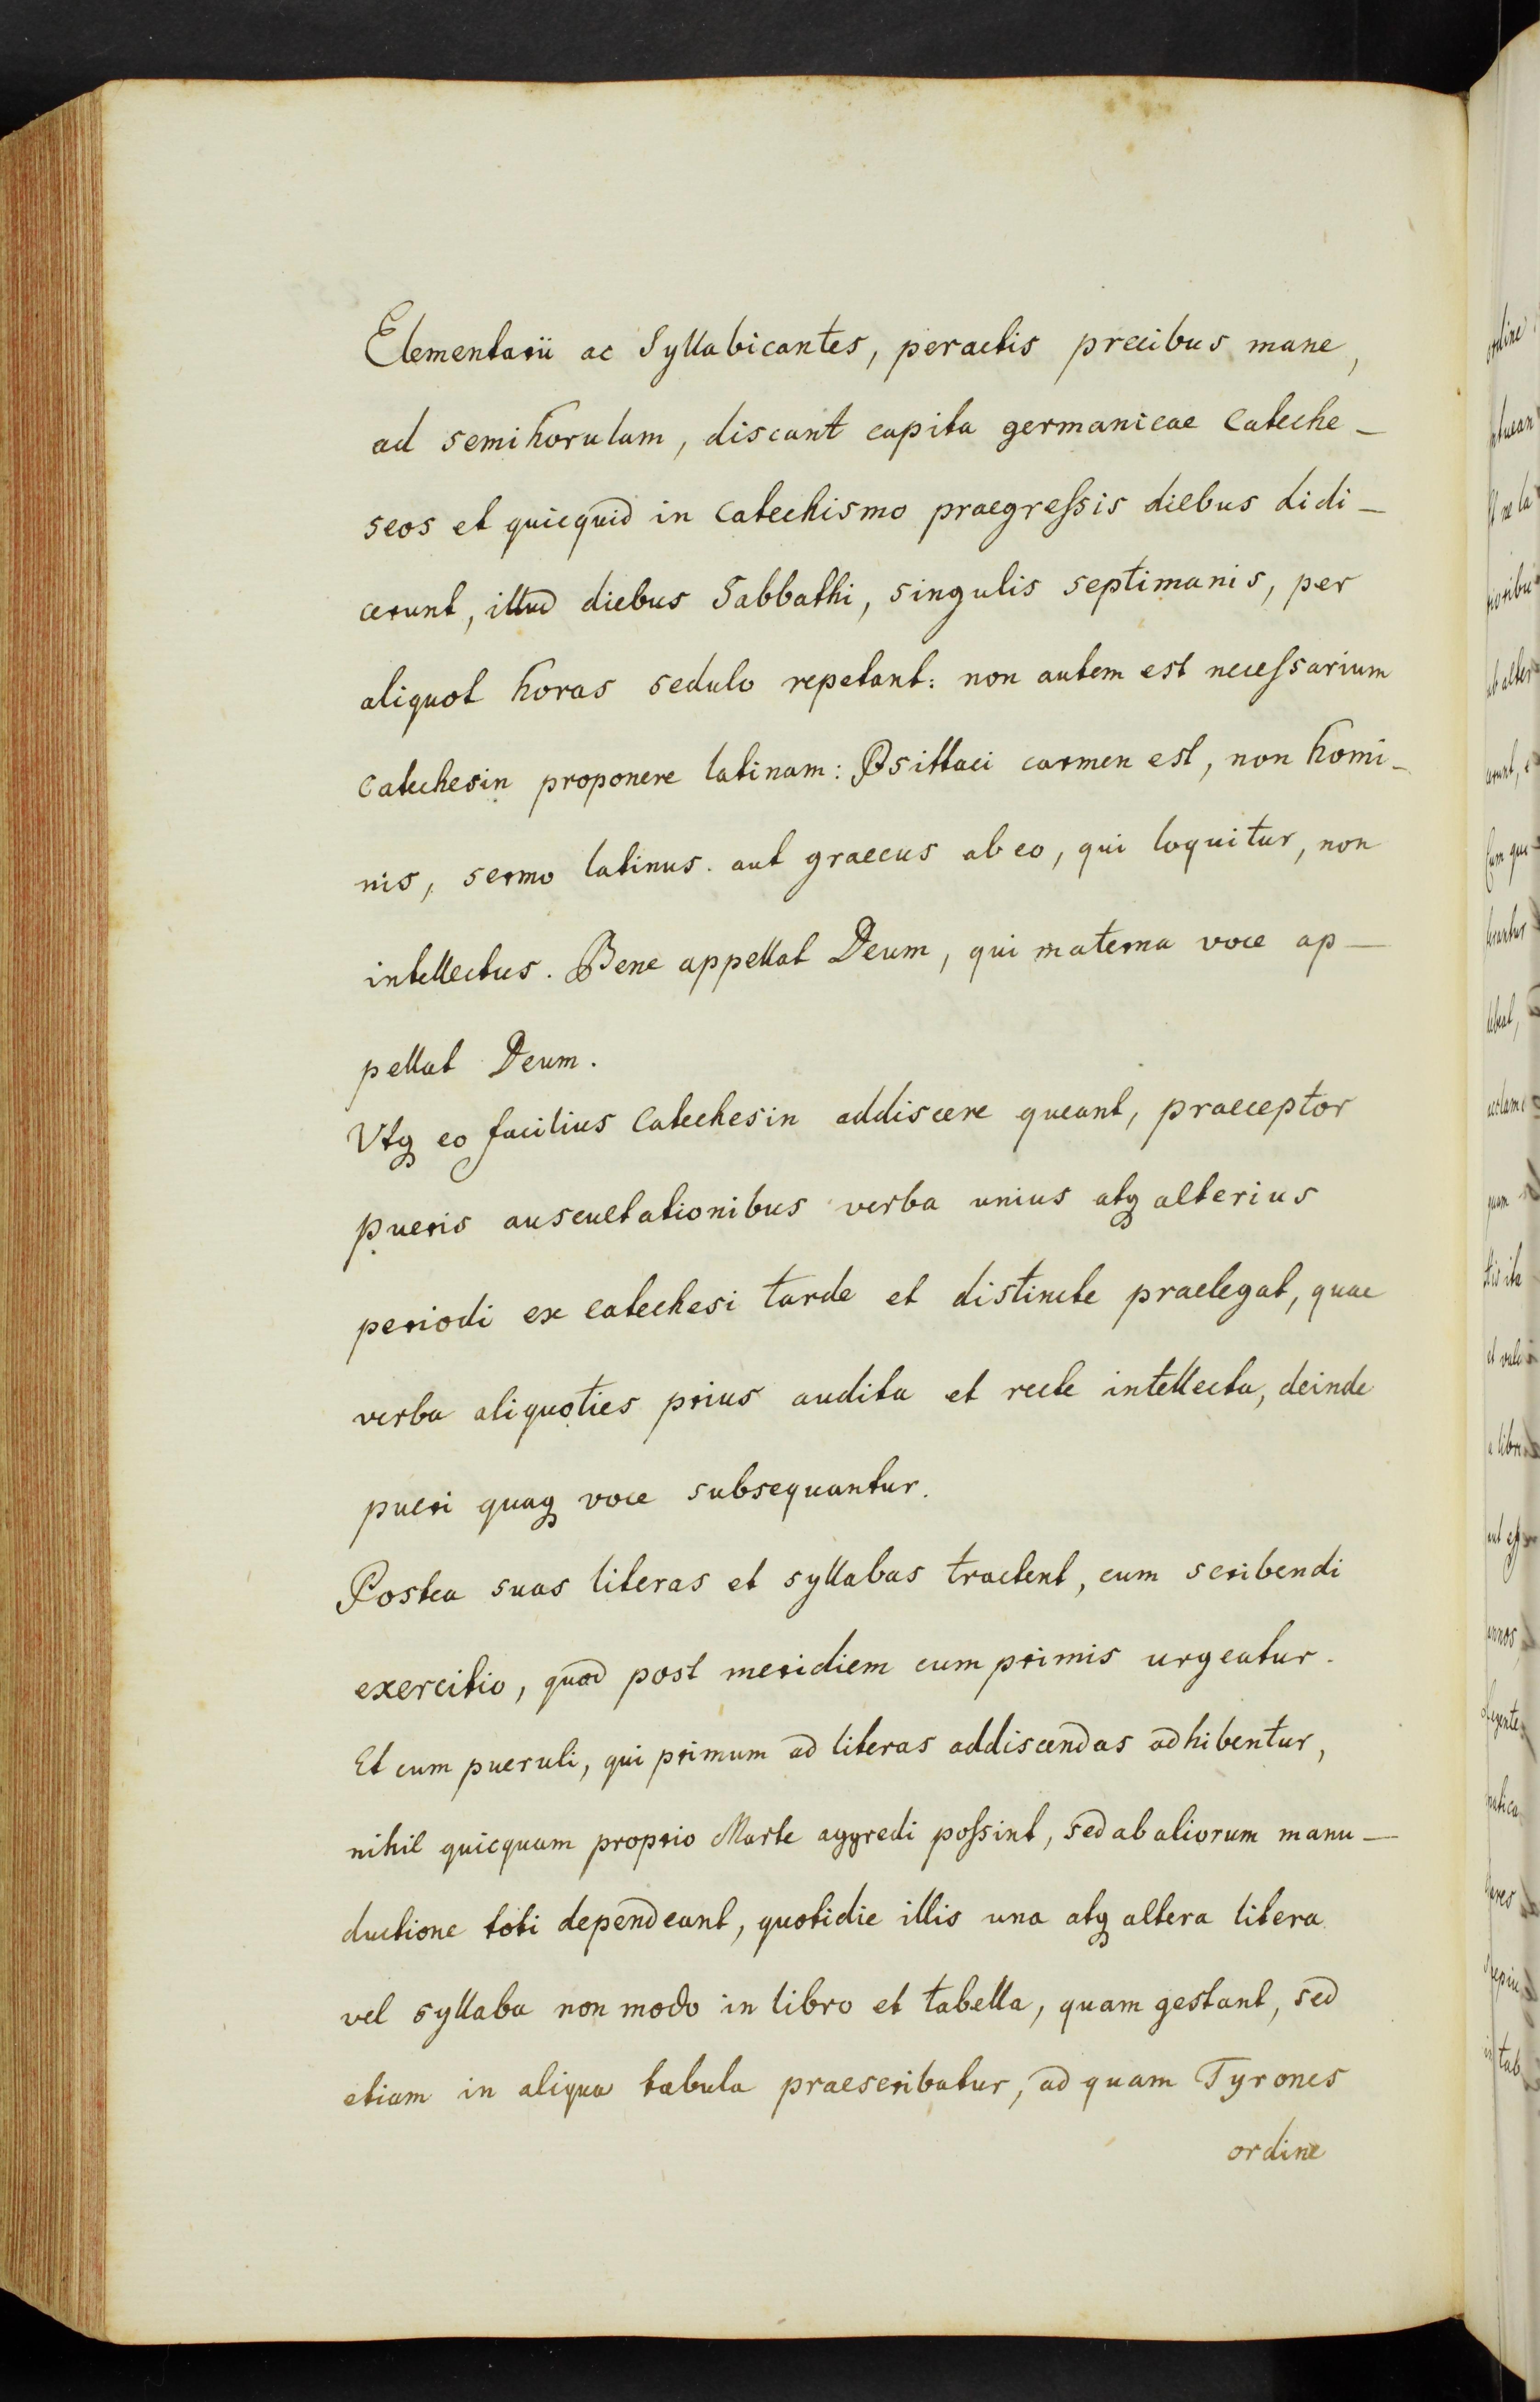 Elementarii ac Syllabicantes, peractis precibus mane,
ad semihorulam, discant capita germanicae Cateche-
seos et quicquid in Catechismo praegreſsis diebus didi-
cerunt, illud diebus Sabbathi, singulis septimanis, per
aliquot horas sedulo repetant: non autem est neceſsarium
Catechesin proponere latinam: Psittaci carmen est, non homi-
nis, sermo latinus. aut graecus ab eo, qui loquitur, non
intellectus. Bene appellat Deum, qui materna voce ap-
pellat Deum.
Vtq eo facilius Catechesin addiscere queant, praeceptor
pueris auscultationibus verba unius atq alterius
periodi ex catechesi tarde et distincte praelegat, quae
verba aliquoties prius audita et recte intellecta, deinde
pueri quaq voce subsequantur.
Postea suas literas et syllabas tractent, cum scribendi
exercitio, quod post meridiem cum primis urgeatur.
Et cum pueruli, qui primum ad literas addiscendas adhibentur,
nihil quicquam proprio Marte aggredi poſsint, sed ab aliorum manu-
ductione toti dependeant, quotidie illis una atq altera litera
vel syllaba non modo in libro et tabella, quam gestant, sed
etiam in aliqua tabula praescribatur, ad quam Tyrones
ordine